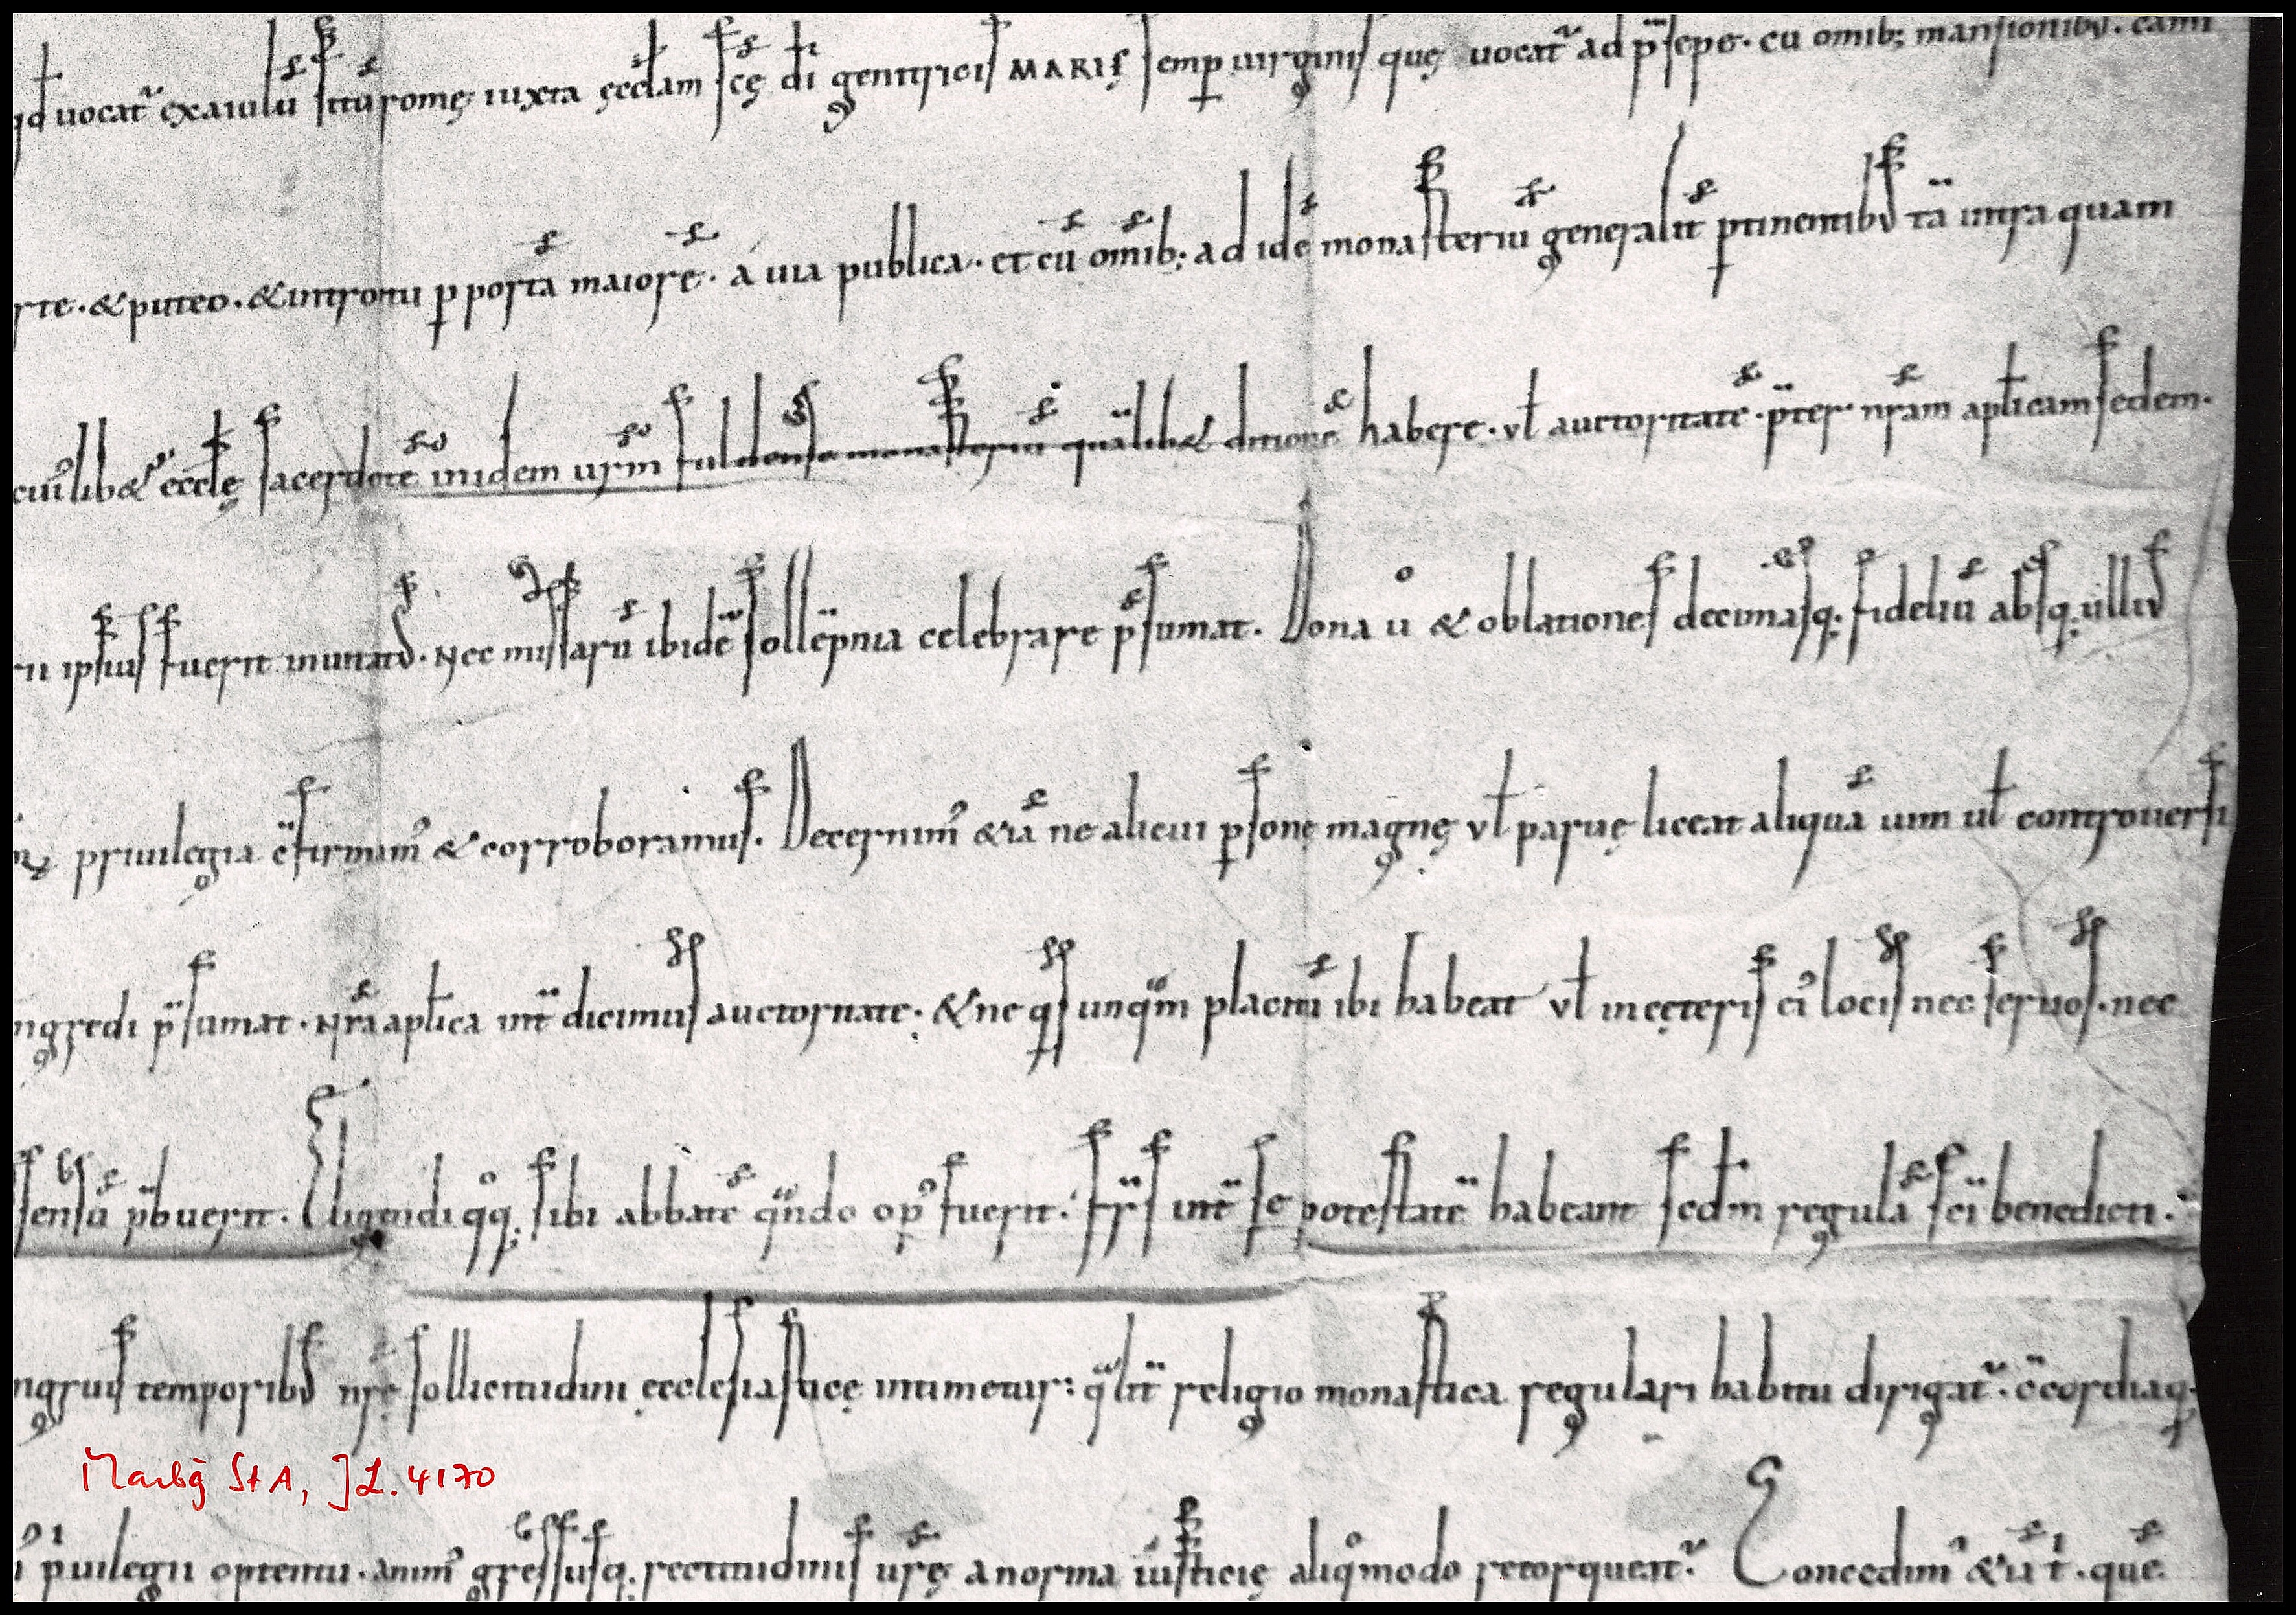 qd uocat᷑ exaiulu situ romę iuxta ęcclam scę di genitricis MARIĘ semp uirginis quę uocat᷑ ad psepe. cu omib; mansionib᷒. cami
rte. & puteo. & introitu p porta maiore. a uia publica. et cu omib; ad ide monasteriu generalit ptinentib᷒ tā intra quam
cui᷒lib& ecclę sacerdote inidem urm fuldense monasteriu qualib& ditione habere. vł auctoritate. pter nram aplicam sedem.
ipsius fuerit inuitat᷒. Nec missarū ibidē sollēpnia celebrare p̄sumat. Dona u° & oblationes decimasq. fideliū absq. ulli᷒
priuilegia c̄firmam᷒ & corroboramus. Decernim᷒ &iā ne alicui psonę magnę vł paruę liceat aliquā uim uł controuersi
ngredi p̄sumat. Nrā aplica int̄dicimus auctoritate. & ne qs unq̄m placitū ibi habeat vł in cęteris ei᷒ locis nec seruos. nec
sensū p̄buerit. Eligendi q°q. sibi abbatē q̄ndo op᷒ fuerit. fr̄s int̄ se potestatē habeant scdm regulā sci benedicti.
ngruis temporib᷒ nrę sollicitudini ęcclesiasticę intimetur: q̄lit̄ religio monastica regulari habitu dirigat᷑. c̄cordiaq.
Marbg StA, JL. 4170
puilegii optentu. anim᷒ gressusq. rectitudinis urę a norma iusticię aliq°modo retorqueat᷑. Concedim᷒ &iā t. quē